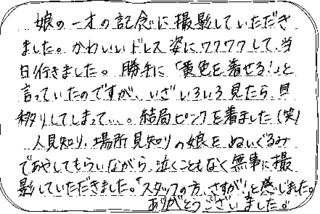 娘の一才の記念に撮影していただき
ました。かわいいドレス姿にワクワクして、当
日行きました。勝手に「黄色を着せる!」と
言っていたのですが、いざいろいろ見たら、目
移りしてしまって…。結局ピンクを着ました(笑)
人見知り、場所見知りの娘を、ぬいぐるみ
であやしてもらいながら、泣くこともなく無事に撮
影していただきました。「スタッフの方、さすが!」と感じました。
ありがとうございました。